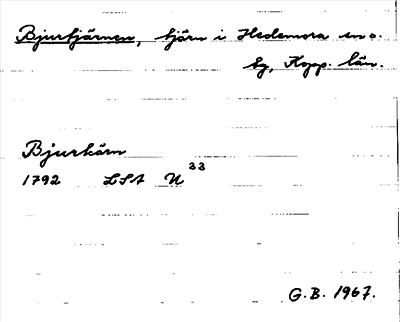 Bjurtjärnen, tjärn i Hedemora sn o.
by, Kopp. län.
Bjurkärn
1792 LSA U 33
G.B. 1967.